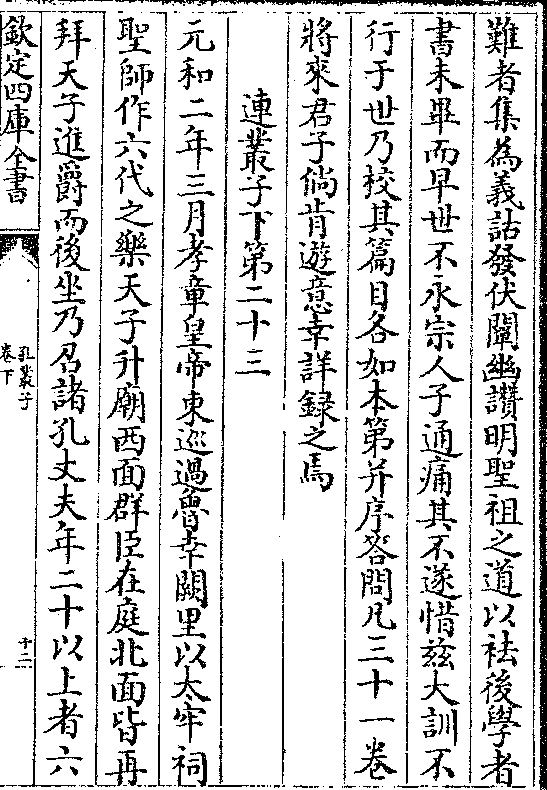 難者集為義詁發伏闡幽讃明聖祖之道以祛後學者
書未畢而早世不永宗人子通痛其不遂惜兹大訓不
行于世乃校其篇目各如本第并序答問凡三十一卷
將來君子倘肯遊意幸詳録之焉
連叢子下第二十三
元和二年三月孝章皇帝東巡過魯幸闕里以太牢祠
聖師作六代之樂天子升廟西面群臣在庭北面皆再
拜天子進爵而後坐乃召諸孔丈夫年二十以上者六
欽定四庫全書
孔叢子
卷下
十二